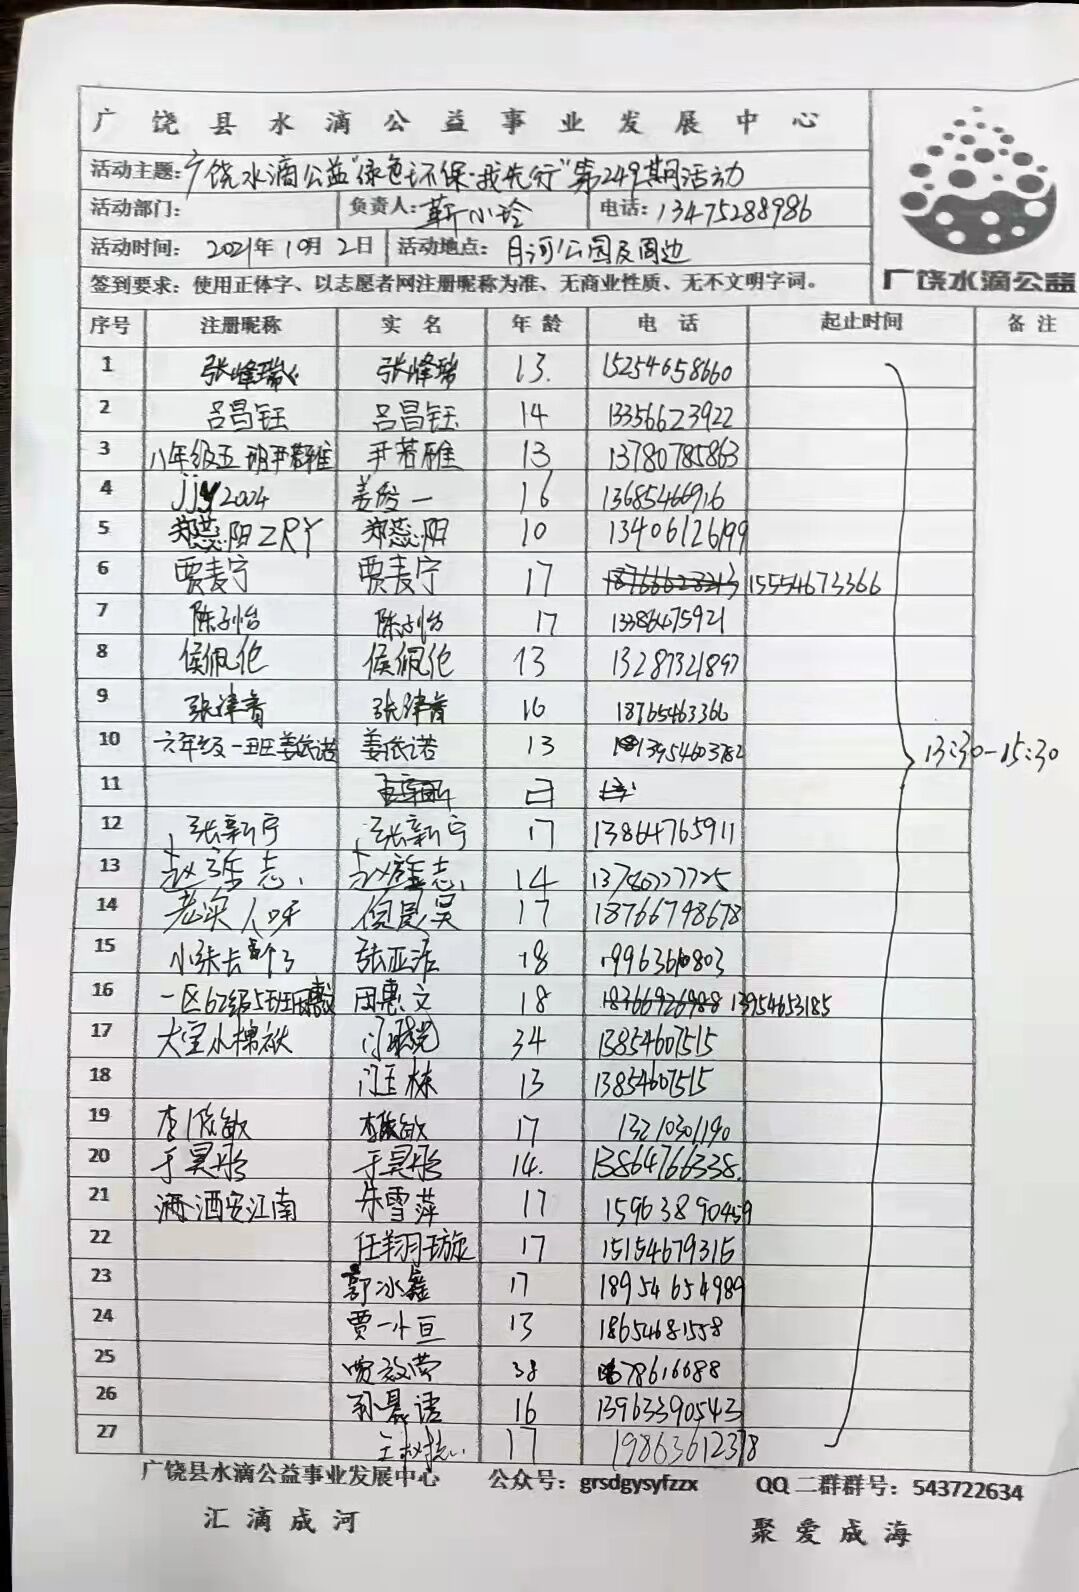 广饶县水滴公益事业发展中心
活动主题:广饶水滴公益"绿色环保·我先行"第249期活动
活动部门: 负责人:靳小玲 电话:13475288986
活动时间: 2021年10月2日 活动地点: 月河公园及周边
签到要求:使用正体字、以志愿者网注册昵称为准、无商业性质、无不文明字词。
广饶水滴公益
序号 注册昵称 实名 年龄 电话 起止时间 备注
1 张烽瑞 张烽瑞 13. 15254658660
2 吕昌钰 吕昌钰 14 13356623922
3 八年级五班尹若雅 尹若雅 13 13780785863
4 jjy2004 姜 一 16 13685466916
5 郑蕊阳ZRY 郑蕊阳 10 13406126199
6 贾麦宁 贾麦宁 17 15554673366
7 陈 怡 陈 怡 17 13386475921
8 侯佩伦 侯佩伦 13 13287321897
9 张津膏 张津膏 16 18765463366
10 六年级一班姜依诺 姜依诺 13 13954603782
13:30-15:30
11
12 张新宁 张新宁 17 13864765911
13 赵 志 赵 志 14 13780777725
14 老实人呀 昊 17 18766798678
15 小张长高个了 张亚洁 18 19963610803
16 一区62级5班田惠文 田惠文 18 13954653185
17 大宝小棉袄 门 34 13854607515
18 门玉栋 13 13854607515
19 李依敏 李依敏 17 13210301190
20 于昊彤 于昊彤 14. 13864766338
21 洒安江南 朱雪萍 17 15963890459
22 任翔璇 17 15154679315
23 郭冰鑫 17 18954654989
24 贾一小亘 13 18654681558
25 38 78616688
26 孙晨语 16 13963390543
27 王 17 19863612378
广饶县水滴公益事业发展中心 公众号:grsdgysyfzzx QQ二群群号:543722634
汇滴成河 聚爱成海